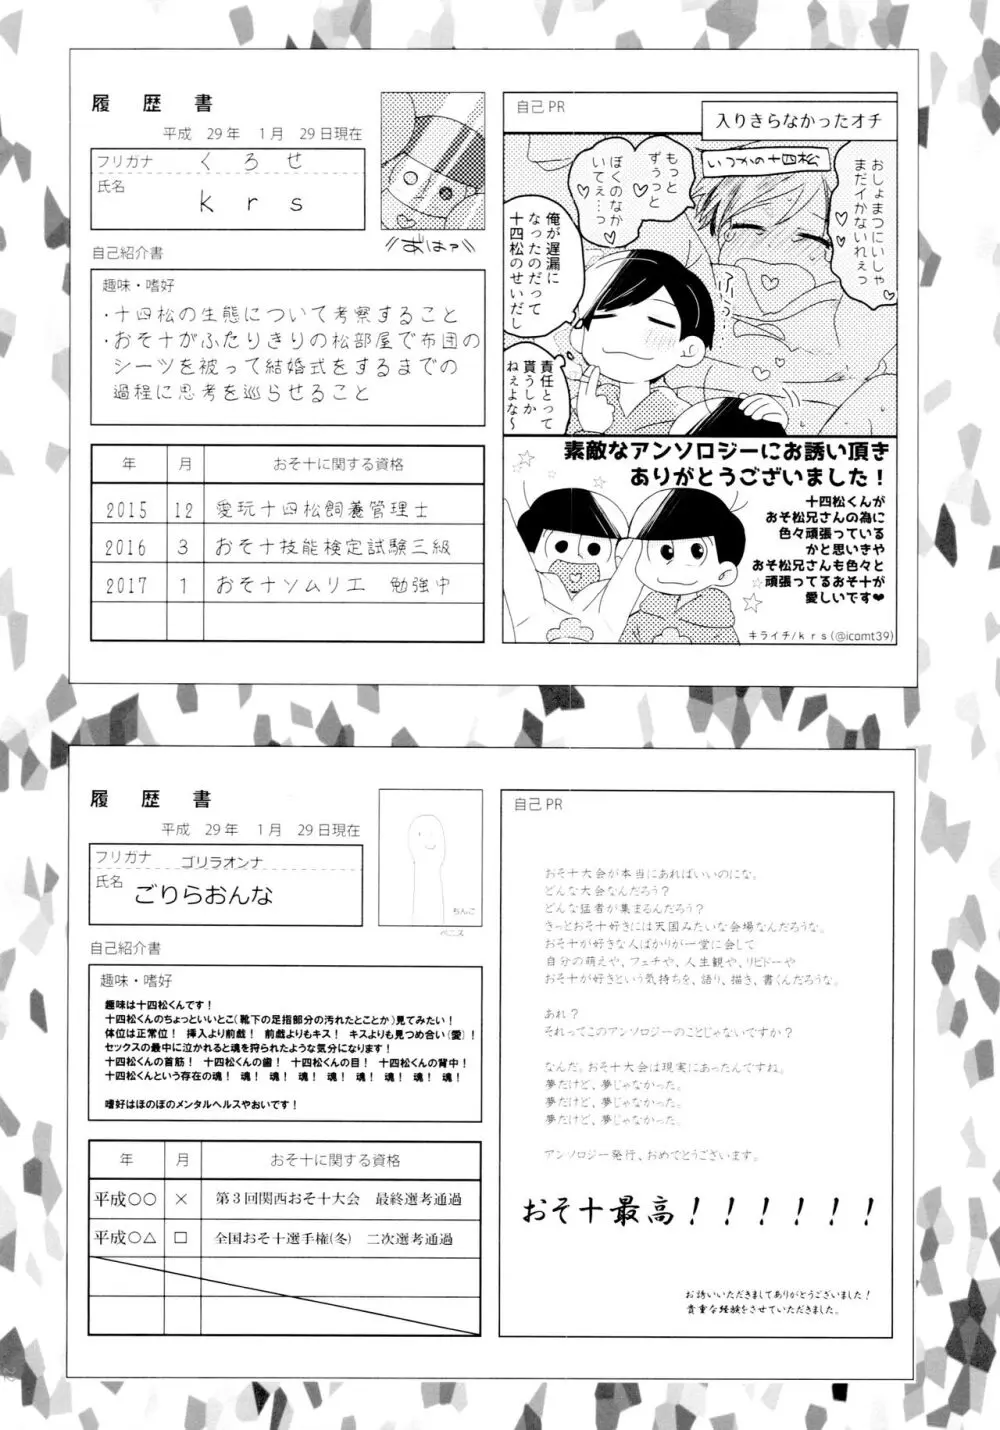 履歴書
平成 29年 1月 29日現在
フリガナ くろせ
氏名
krs
おはァ
自己紹介書
趣味・嗜好
・十四松の生態について考察すること
・おそ十がふたりきりの松部屋で布団の
シーツを被って結婚式をするまでの
過程に思考を巡らせること
年 月 おそ十に関する資格
2015 12 愛玩十四松飼養管理士
2016 3 おそ十技能検定試験三級
2017 1 おそ十ソムリエ 勉強中
自己PR
入りきらなかったオチ
いつかの十四松
おしょまつにいしゃ
まだイかないれぇっ
もっと
ずぅっと
ぼくのなか
いてぇ…っ
俺が遅漏に
なったのだって
十四松のせいだし
責任とって
貰うしか
ねぇよな〜
素敵なアンソロジーにお誘い頂き
ありがとうございました!
十四松くんが
おそ松兄さんの為に
色々頑張っている
かと思いきや
おそ松兄さんも色々と
頑張ってるおそ十が
愛しいです❤
キライチ/krs(@icomt39)
履歴書
平成 29年 1月 29日現在
フリガナ ゴリラオンナ
氏名
ごりらおんな
ちんこ
ペニス
自己紹介書
趣味・嗜好
趣味は十四松くんです!
十四松くんのちょっといいとこ(靴下の足指部分の汚れたとことか)見てみたい!
体位は正常位! 挿入より前戯! 前戯よりもキス! キスよりも見つめ合い(愛)!
セックスの最中に泣かれると魂を狩られたような気分になります!
十四松くんの首筋! 十四松くんの歯! 十四松くんの目! 十四松くんの背中!
十四松くんという存在の魂! 魂! 魂! 魂! 魂! 魂! 魂! 魂! 魂!
嗜好はほのぼのメンタルヘルスやおいです!
年 月 おそ十に関する資格
平成○○ × 第3回関西おそ十大会 最終選考通過
平成○△ □ 全国おそ十選手権(冬) 二次選考通過
自己PR
おそ十大会が本当にあればいいのにな。
どんな大会なんだろう?
どんな猛者が集まるんだろう?
きっとおそ十好きには天国みたいな会場なんだろうな。
おそ十が好きな人ばかりが一堂に会して
自分の萌えや、フェチや、人生観や、リビドーや
おそ十が好きという気持ちを、語り、描き、書くんだろうな。
あれ?
それってこのアンソロジーのことじゃないですか?
なんだ。おそ十大会は現実にあったんですね。
夢だけど、夢じゃなかった。
夢だけど、夢じゃなかった。
夢だけど、夢じゃなかった。
アンソロジー発行、おめでとうございます。
おそ十最高!!!!!!
お誘いいただきましてありがとうございました!
貴重な経験をさせていただきました。